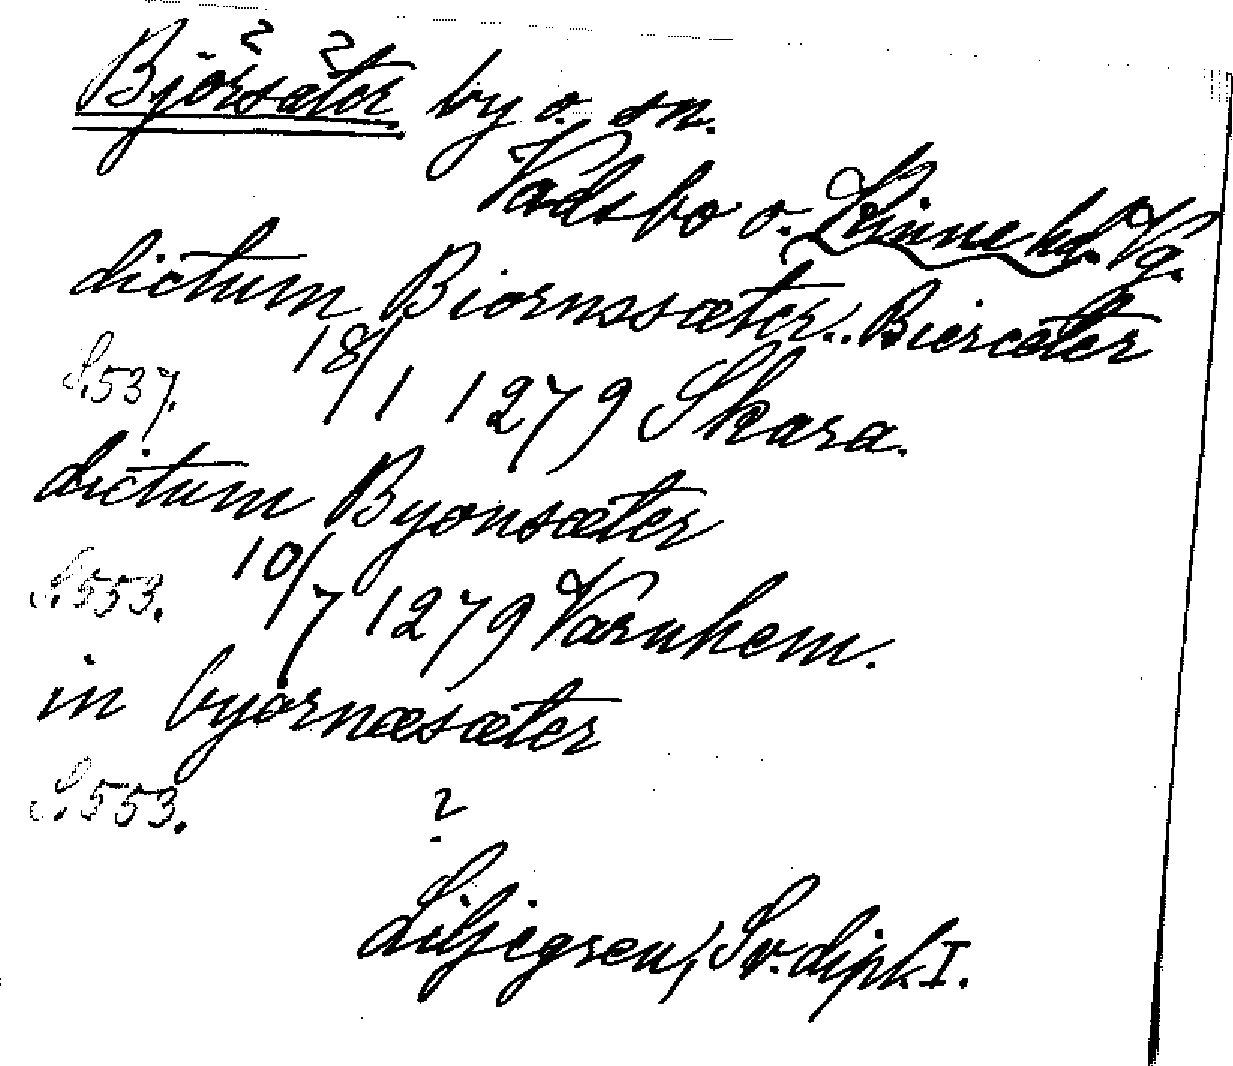 Björsäter by o. sn.
Vadsbo o. Kinne hd. Vg.
dictum Biornssæter.. Biercæter
S. 537. 18/1 1279 Skara.
dictum Byonsæter
S. 553. 10/7 1279 Varnhem.
in byornæsæter
S. 553. ?
Liljegren, Sv. dipl. I.